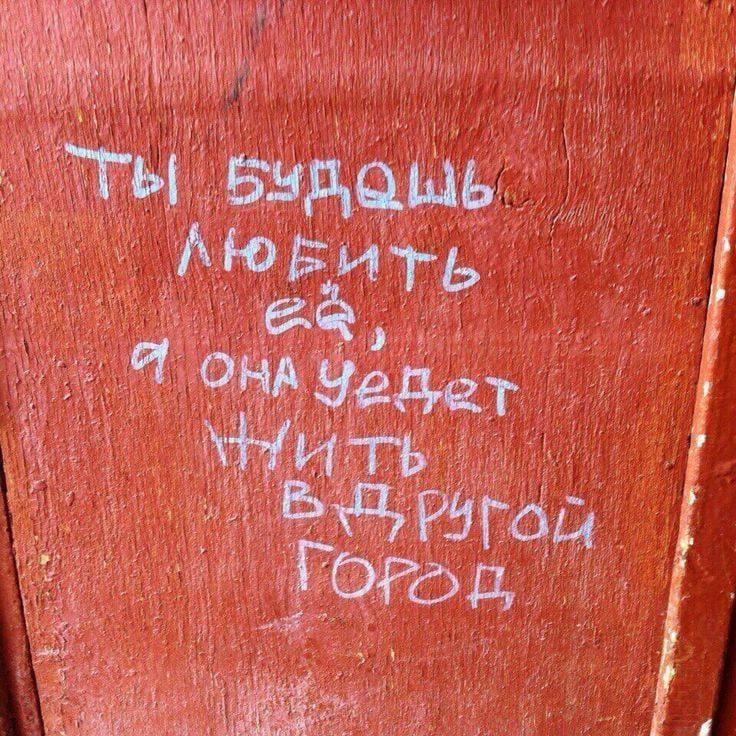 ты будешь
любить
её,
а она уедет
жить
в другой
город